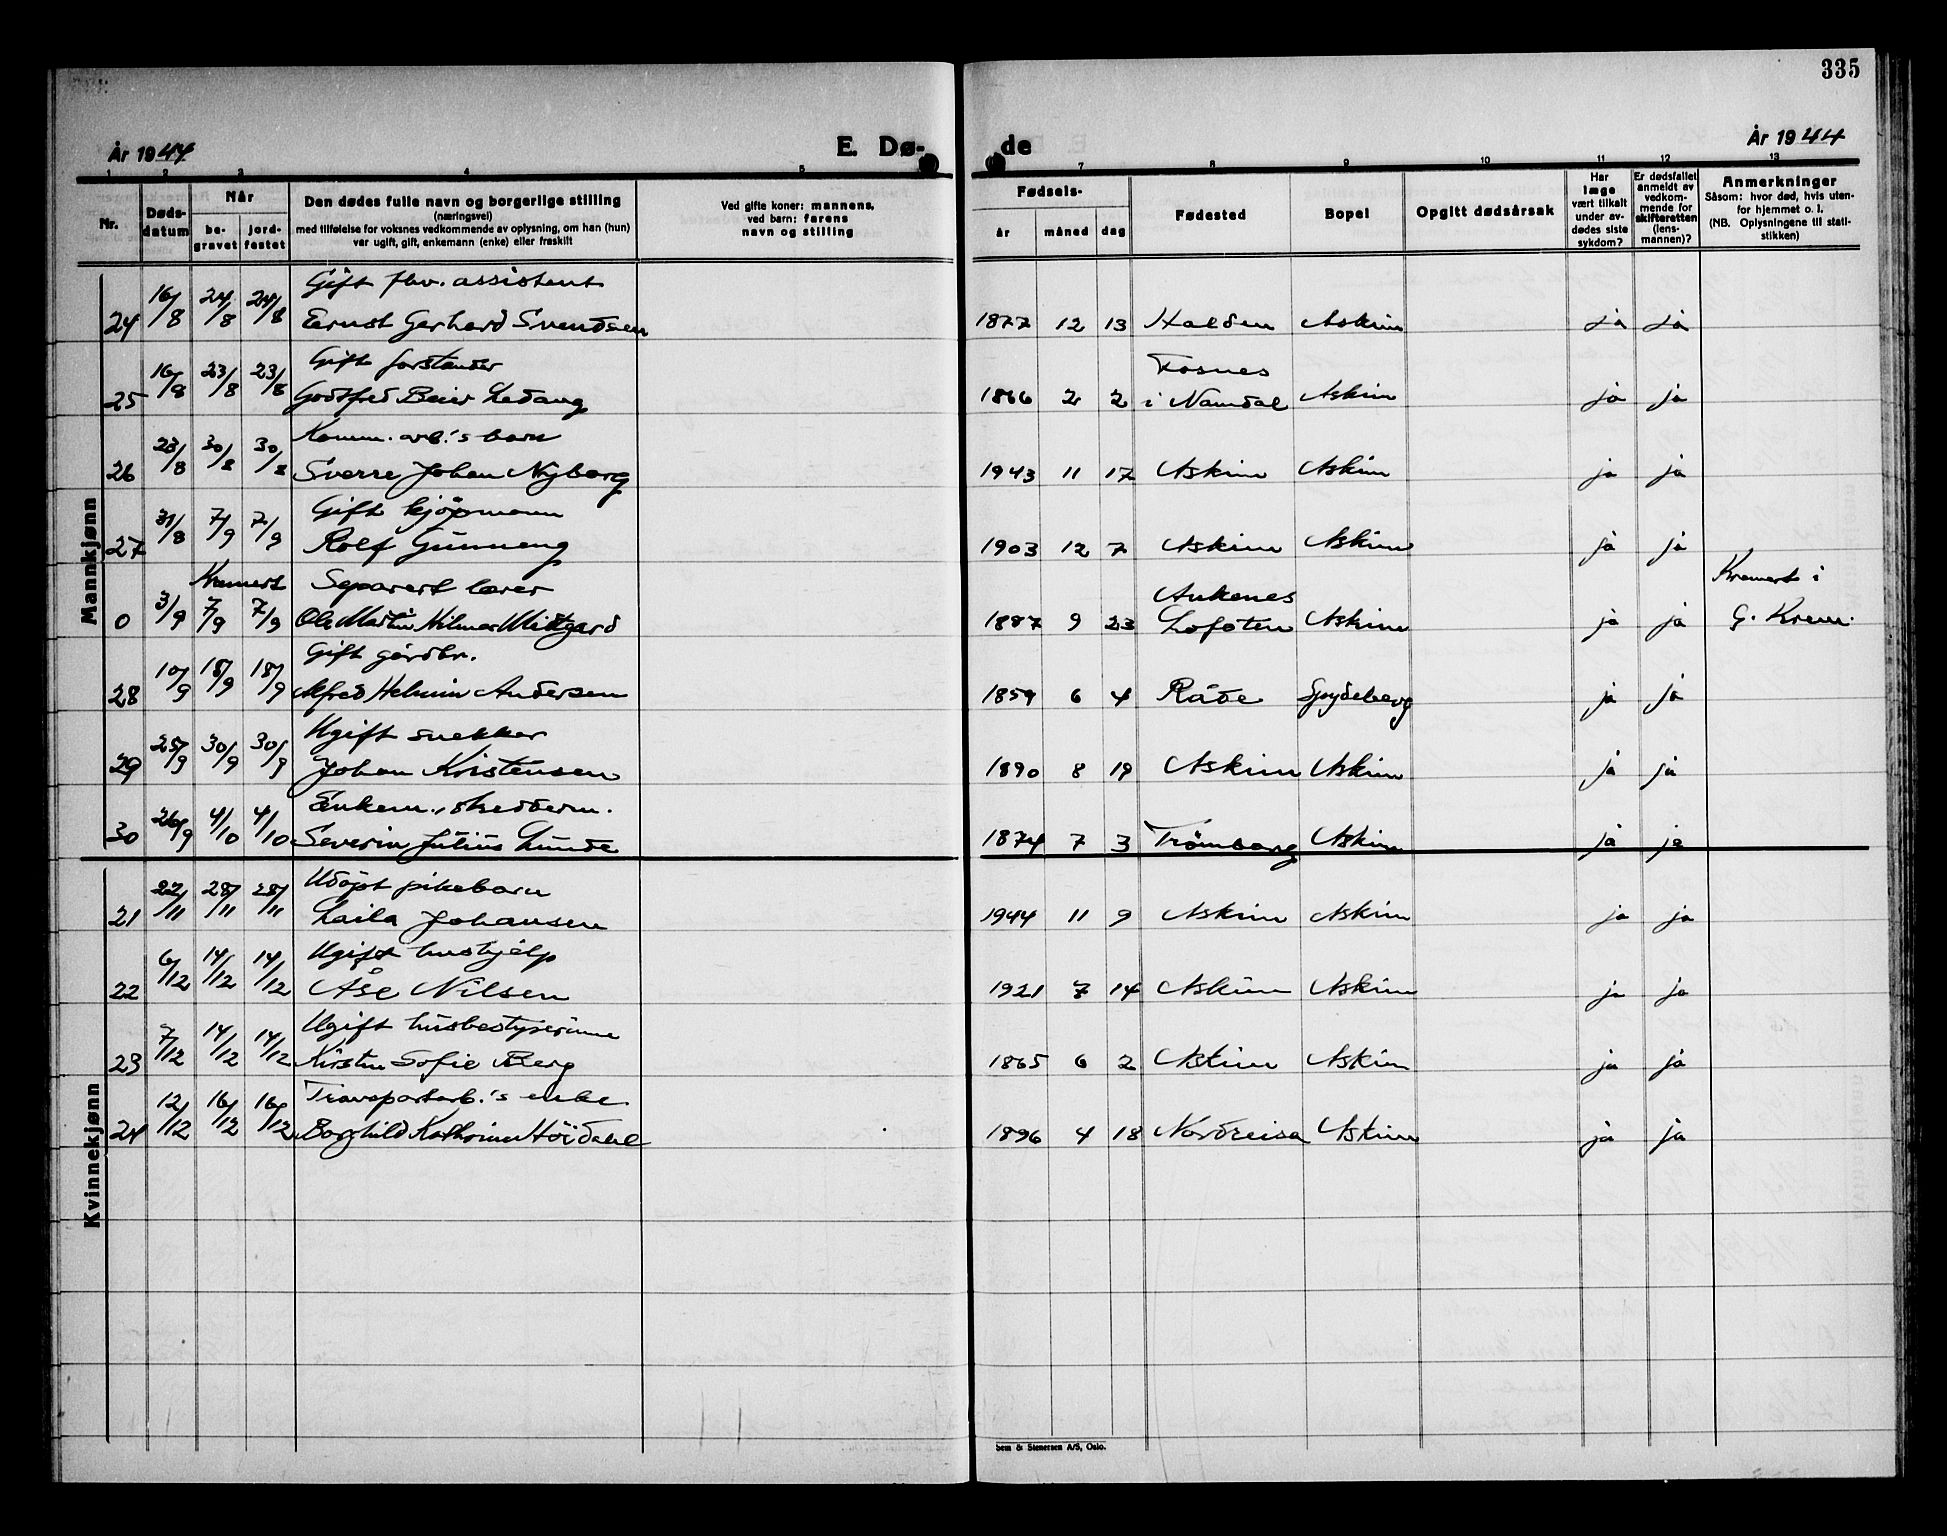 335
År 1944 E. Dø- de År 1944
1 2 3 4 5 7 8 9 10 11 12 13
Nr.
Døds-datum
Når
be-gravet
jord-festet
Den dødes fulle navn og borgerlige stilling
(næringsvei)
med tilføielse for voksnes vedkommende av oplysning, om han (hun)
var ugift, gift, enkemann (enke) eller fraskilt
Ved gifte koner: mannens,
ved barn: farens
navn og stilling
Fødsels-
år måned dag
Fødested
Bopel
Opgitt dødsårsak
Har
læge
vært tilkalt
under av-
dødes siste
sykdom?
Er dødsfallet
anmeldt av
vedkom-
mende for
skifteretten
(lens-
mannen)?
Anmerkninger
Såsom: hvor død, hvis uten-
for hjemmet o. l.
(NB. Oplysningene til stati-
stikken)
Mannkjønn
Gift fhv. assistent
24 16/8 24/8 24/8 Ernst Gerhard Svendsen 1877 12 13 Halden Askim ja ja
Gift forstander Fosnes
25 16/8 23/8 23/8 Godtfred Beier Ledang 1866 2 2 i Namdal Askim ja ja
Komm. arb.'s barn
26 23/8 30/8 30/8 Sverre Johan Nyborg 1943 11 17 Askim Askim ja ja
Gift kjöpmann
27 31/8 7/9 7/9 Rolf Gunneng 1903 12 7 Askim Askim ja ja
Kremert Separert lærer Ankenes Kremert i
0 3/9 7/9 7/9 Ole Martin Hilmar Midtgard 1887 9 23 Lofoten Askim ja ja G. Krem.
Gift gårdbr.
28 10/9 18/9 18/9 Alfred Helmin Andersen 1859 6 4 Råde Spydeberg ja ja
Ugift snekker
29 25/9 30/9 30/9 Johan Kristensen 1890 8 19 Askim Askim ja ja
Enkem., skredderm.
30 26/9 4/10 4/10 Severin Julius Lunde 1874 7 3 Trömborg Askim ja ja
Kvinnekjønn
Udöpt pikebarn
21 22/11 28/11 28/11 Laila Johansen 1944 11 9 Askim Askim ja ja
Ugift hushjelp
22 6/12 14/12 14/12 Åse Nilsen 1921 7 14 Askim Askim ja ja
Ugift husbestyrerinne
23 7/12 14/12 14/12 Kirsten Sofie Berg 1865 6 2 Askim Askim ja ja
Transportarb.'s enke
24 12/12 16/12 16/12 Borghild Kathrine Höidahl 1896 4 18 Nordreisa Askim ja ja
Sem & Stenersen A/S, Oslo.